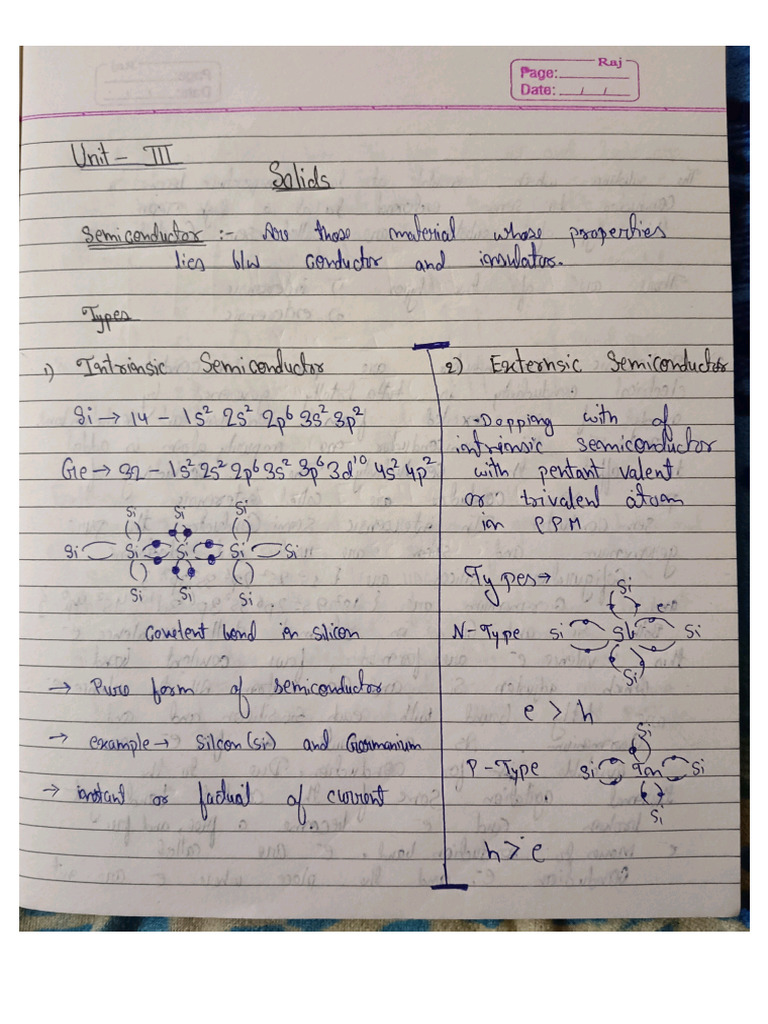 Raj
Page:
Date: / /
Unit - III
Solids
Semiconductor :- Are those material whose properties
lies b/w conductor and insulators.
Types
1) Intrinsic Semiconductor
Si → 14 - 1s² 2s² 2p⁶ 3s² 3p²
Ge → 32 - 1s² 2s² 2p⁶ 3s² 3p⁶ 3d¹⁰ 4s² 4p²
Si Si Si
Si Si Si Si Si
Si Si Si
Covelent bond in silicon
→ Pure form of semiconductor
→ example → Silcon (si) and Germanium
→ or factual of current
2) Externsic Semiconductor
Dopping with of
intrinsic semiconductor
with pentant valent
or trivalent atom
in PPM
Types →
Si
e
N-Type Si Sb Si
Si
e > h
Si
P-Type Si In Si
Si
h > e